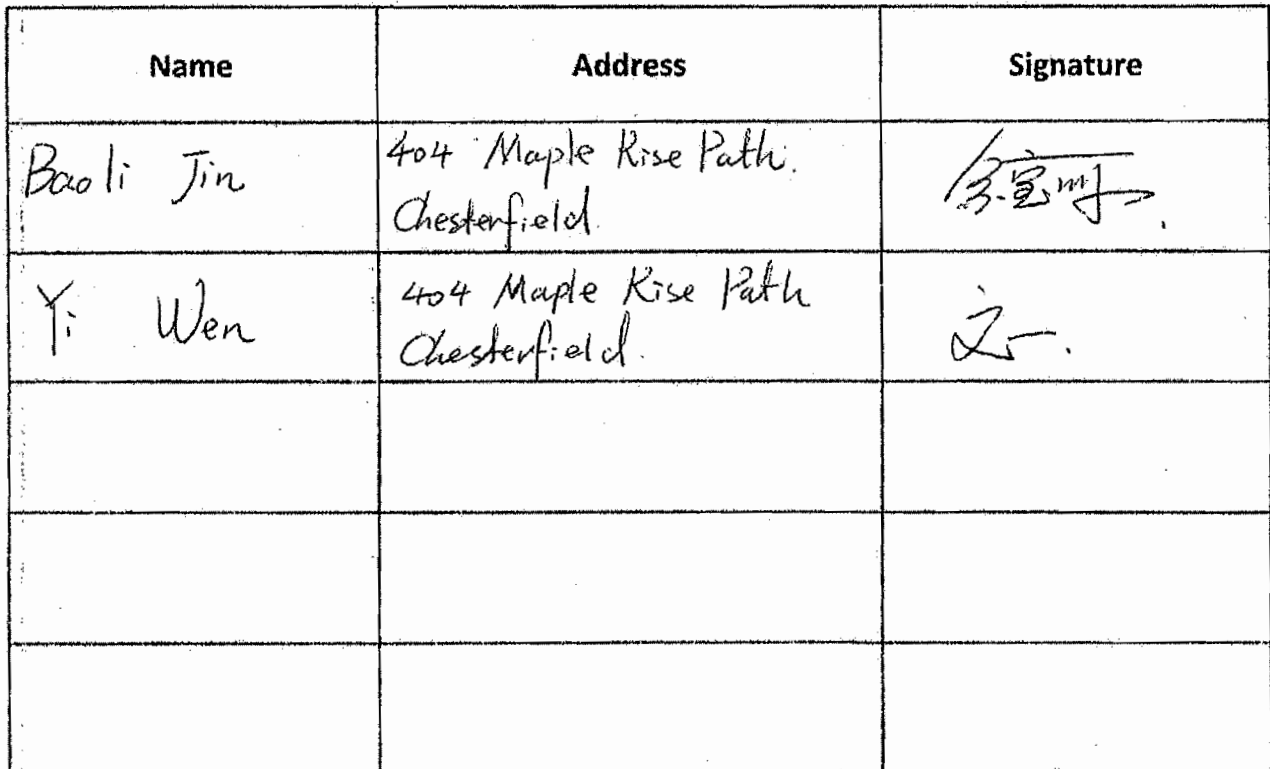 Name Address Signature
Baoli Jin
404 Maple Rise Path.
Chesterfield.
Yi Wen
404 Maple Rise Path
Chesterfield.
文一.